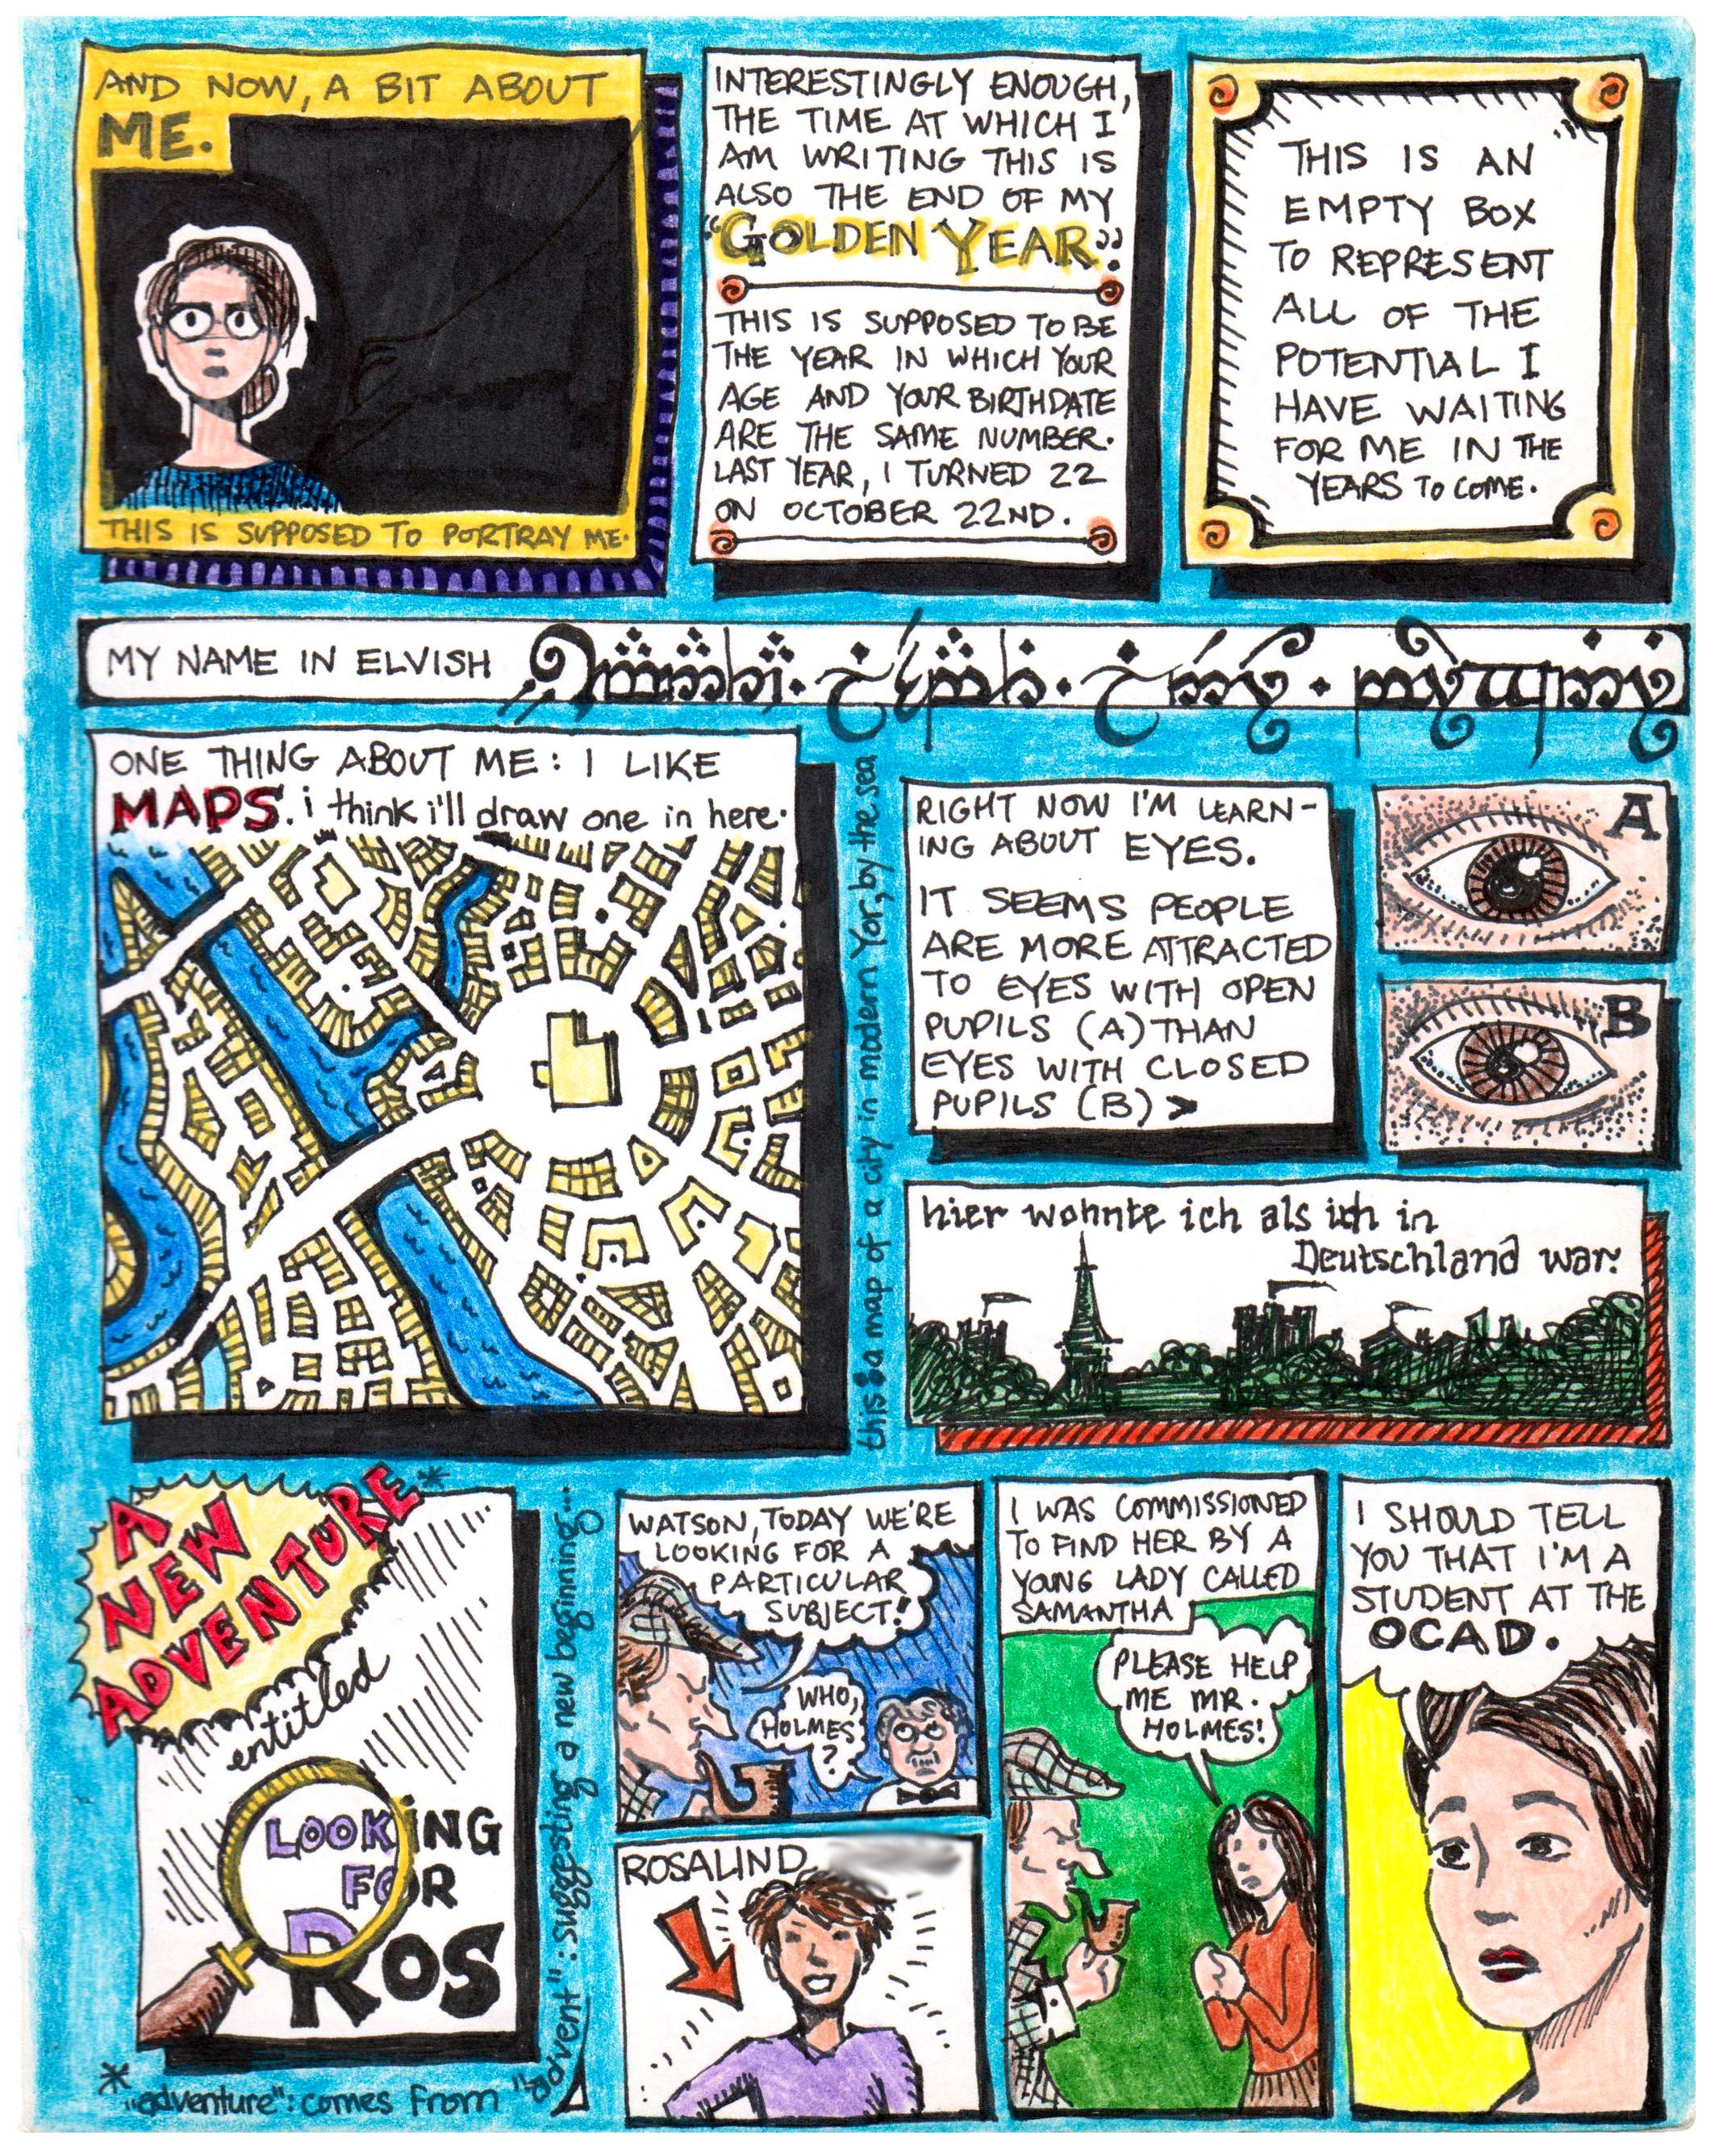 AND NOW, A BIT ABOUT
ME.
THIS IS SUPPOSED TO PORTRAY ME.
INTERESTINGLY ENOUGH,
THE TIME AT WHICH I
AM WRITING THIS IS
ALSO THE END OF MY
"GOLDEN YEAR".
THIS IS SUPPOSED TO BE
THE YEAR IN WHICH YOUR
AGE AND YOUR BIRTHDATE
ARE THE SAME NUMBER.
LAST YEAR, I TURNED 22
ON OCTOBER 22ND.
THIS IS AN
EMPTY BOX
TO REPRESENT
ALL OF THE
POTENTIAL I
HAVE WAITING
FOR ME IN THE
YEARS TO COME.
MY NAME IN ELVISH
ONE THING ABOUT ME: I LIKE
MAPS. i think i'll draw one in here.
this is a map of a city in modern Yor, by the sea
RIGHT NOW I'M LEARN-
ING ABOUT EYES.
IT SEEMS PEOPLE
ARE MORE ATTRACTED
TO EYES WITH OPEN
PUPILS (A) THAN
EYES WITH CLOSED
PUPILS (B) >
A
B
hier wohnte ich als ich in
Deutschland war.
A
NEW
ADVENTURE*
entitled
LOOKING
FOR
ROS
*"adventure": comes from "advent": suggesting a new beginning...
WATSON, TODAY WE'RE
LOOKING FOR A
PARTICULAR
SUBJECT!
WHO,
HOLMES
?
ROSALIND
I WAS COMMISSIONED
TO FIND HER BY A
YOUNG LADY CALLED
SAMANTHA
PLEASE HELP
ME MR.
HOLMES!
I SHOULD TELL
YOU THAT I'M A
STUDENT AT THE
OCAD.